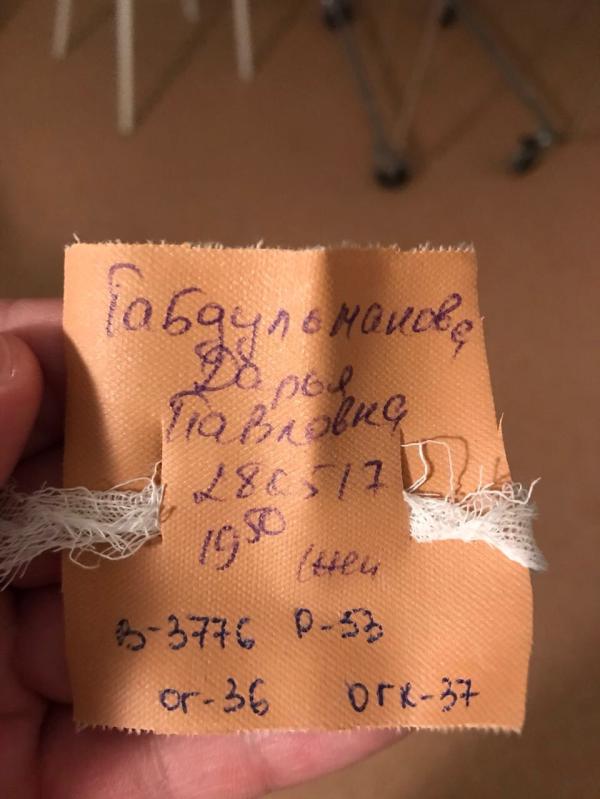 Габдульманова
Дарья
Павловна
28 05 17
19 50 жен
в-3776 р-53
ог-36 огк-37